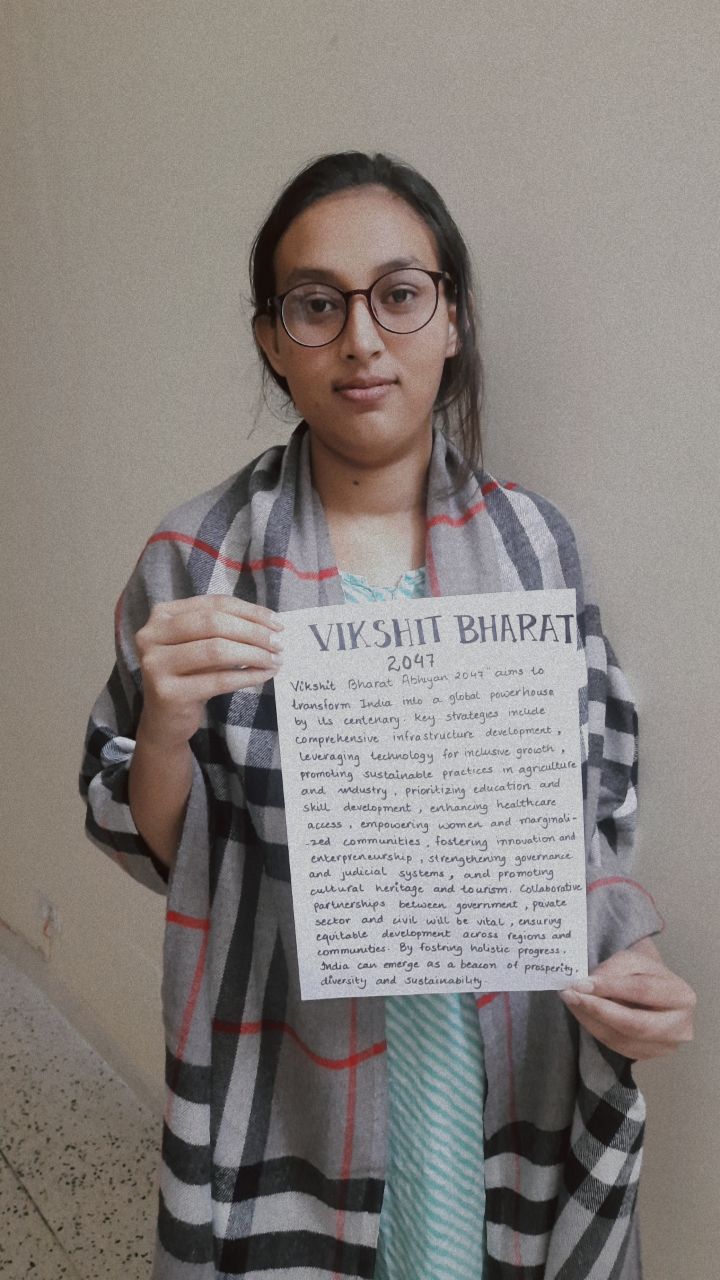 VIKSHIT BHARAT
2047
Vikshit Bharat Abhiyan 2047" aims to
transform India into a global powerhouse
by its centenary. Key strategies include
comprehensive infrastructure development,
leveraging technology for inclusive growth,
promoting sustainable practices in agriculture
and industry, prioritizing education and
skill development, enhancing healthcare
access, empowering women and marginali-
zed communities, fostering innovation and
enterpreneurship, strengthening governance
and judicial systems, and promoting
cultural heritage and tourism. Collaborative
partnerships between government, private
sector and civil will be vital, ensuring
equitable development across regions and
communities. By fostring holistic progress.
India can emerge as a beacon of prosperity,
diversity and sustainability.